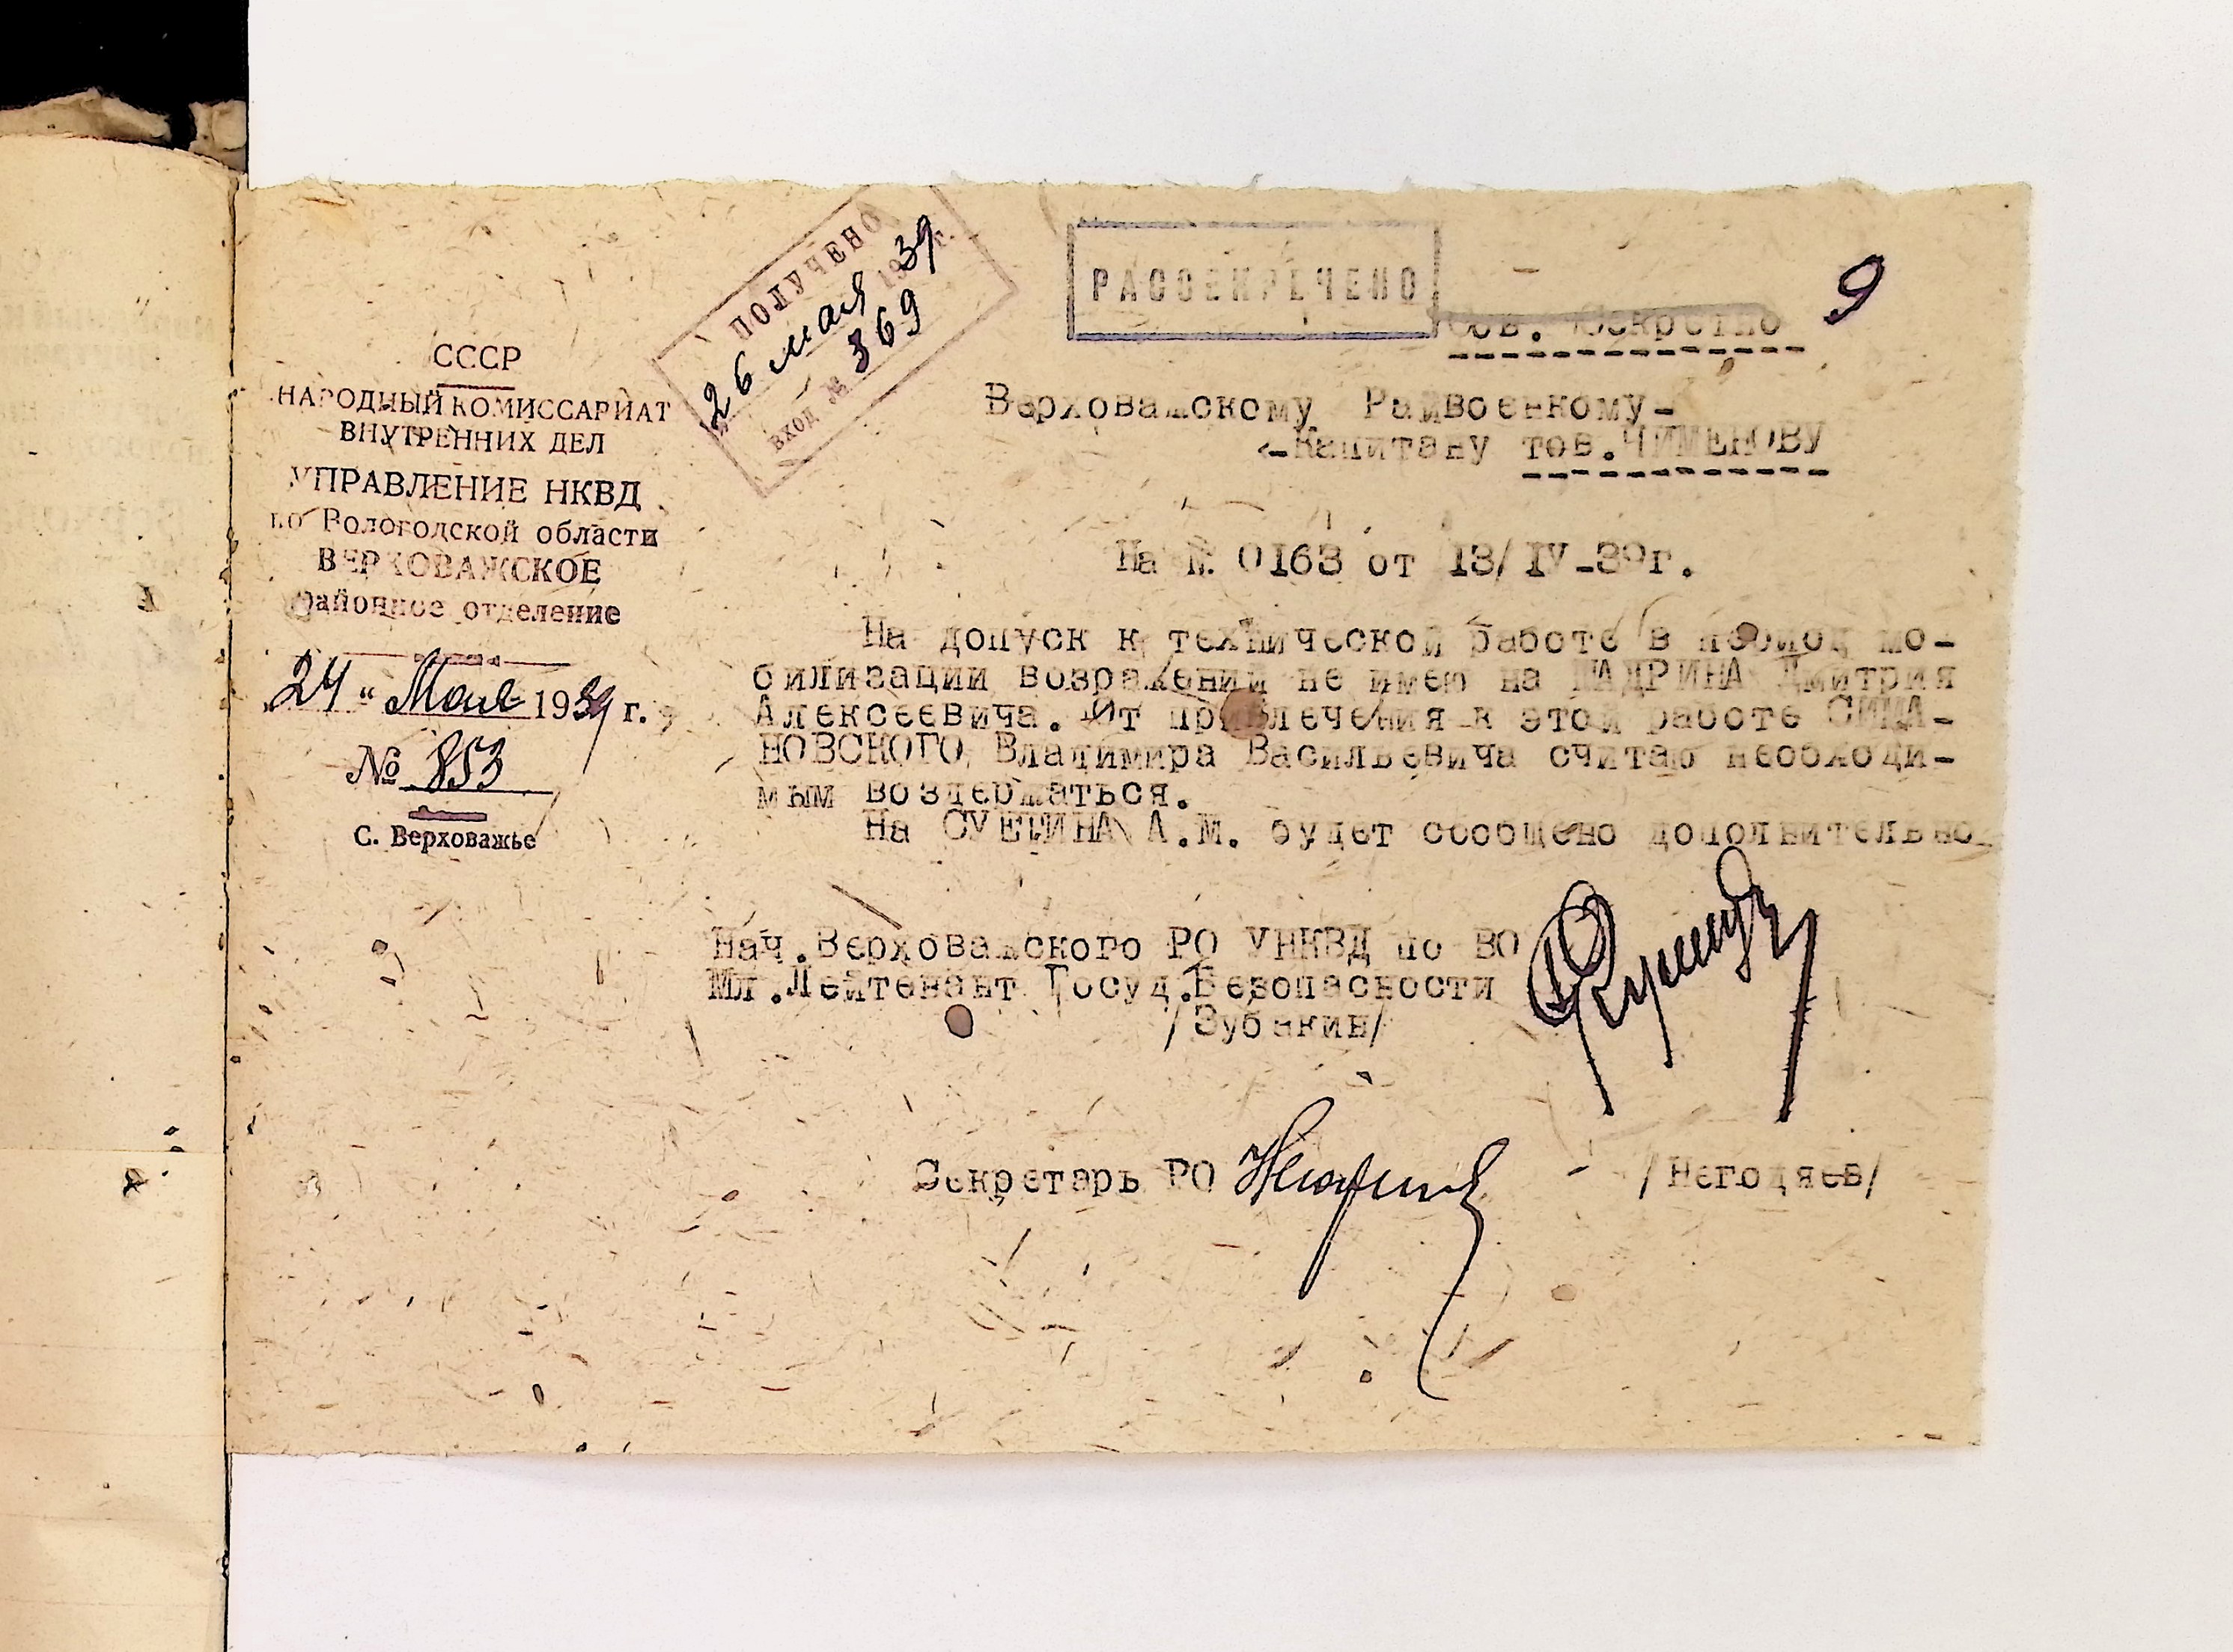 СССР
НАРОДНЫЙ КОМИССАРИАТ
ВНУТРЕННИХ ДЕЛ
УПРАВЛЕНИЕ НКВД
по Вологодской области
ВЕРХОВАЖСКОЕ
районное отделение
24 " Мая 1939 г.
№ 853
С. Верховажье
ПОЛУЧЕНО
26 мая 1939 г.
ВХОД № 369
РАССЕКРЕЧЕНО
9
Сов. Секретно
Верховажскому Райвоенкому-
-Капитану тов.ЧИМЕНОВУ
На № 0163 от 13/IV-39г.
На допуск к технической работе в период мо-
билизации возражений не имею на ШАДРИНА Дмитрия
Алексеевича. От привлечения к этой работе СИМА-
НОВСКОГО Владимира Васильевича считаю необходи-
мым воздержаться.
На СУЕТИНА А.М. будет сообщено дополнительно.
Нач.Верховажского РО УНКВД по ВО
Мл.Лейтенант Госуд.Безопасности
/Зубакин/
Секретарь РО
/Негодяев/